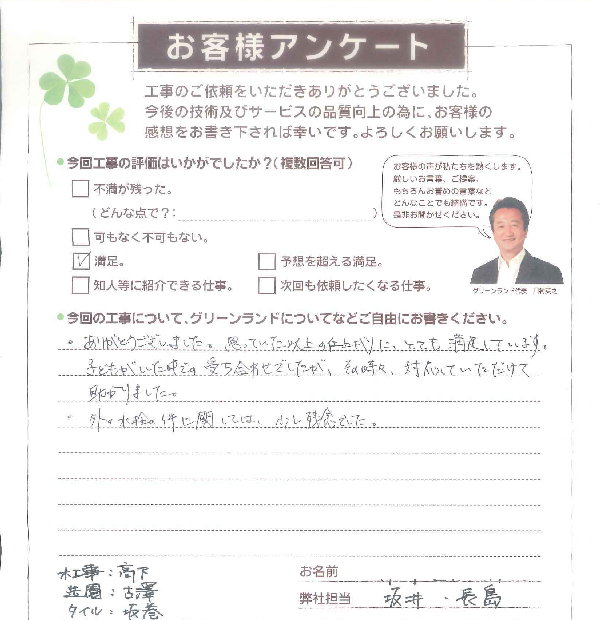 お客様アンケート
工事のご依頼をいただきありがとうございました。
今後の技術及びサービスの品質向上の為に、お客様の
感想をお書き下されば幸いです。よろしくお願いします。
●今回工事の評価はいかがでしたか？（複数回答可）
不満が残った。
（どんな点で？：　　　）
可もなく不可もない。
満足。
予想を超える満足。
知人等に紹介できる仕事。
次回も依頼したくなる仕事。
お客様の声が私たちを動くします。
厳しいお言葉、ご提案、
もちろんお誉めの言葉など
どんなことでも結構です。
是非お聞かせください。
グリーンランド代表
●今回の工事について、グリーンランドについてなどご自由にお書きください。
・ありがとうございました。思っていた以上の仕上がりに、とても満足しています。
子どもがいた中での受ち合わせでしたが、その時々、対応していただけて
助かりました。
・外の水栓の件に関しては、少し残念でした。
木工事：高下
造園：古澤
タイル：坂巻
お名前
弊社担当 坂井・長島